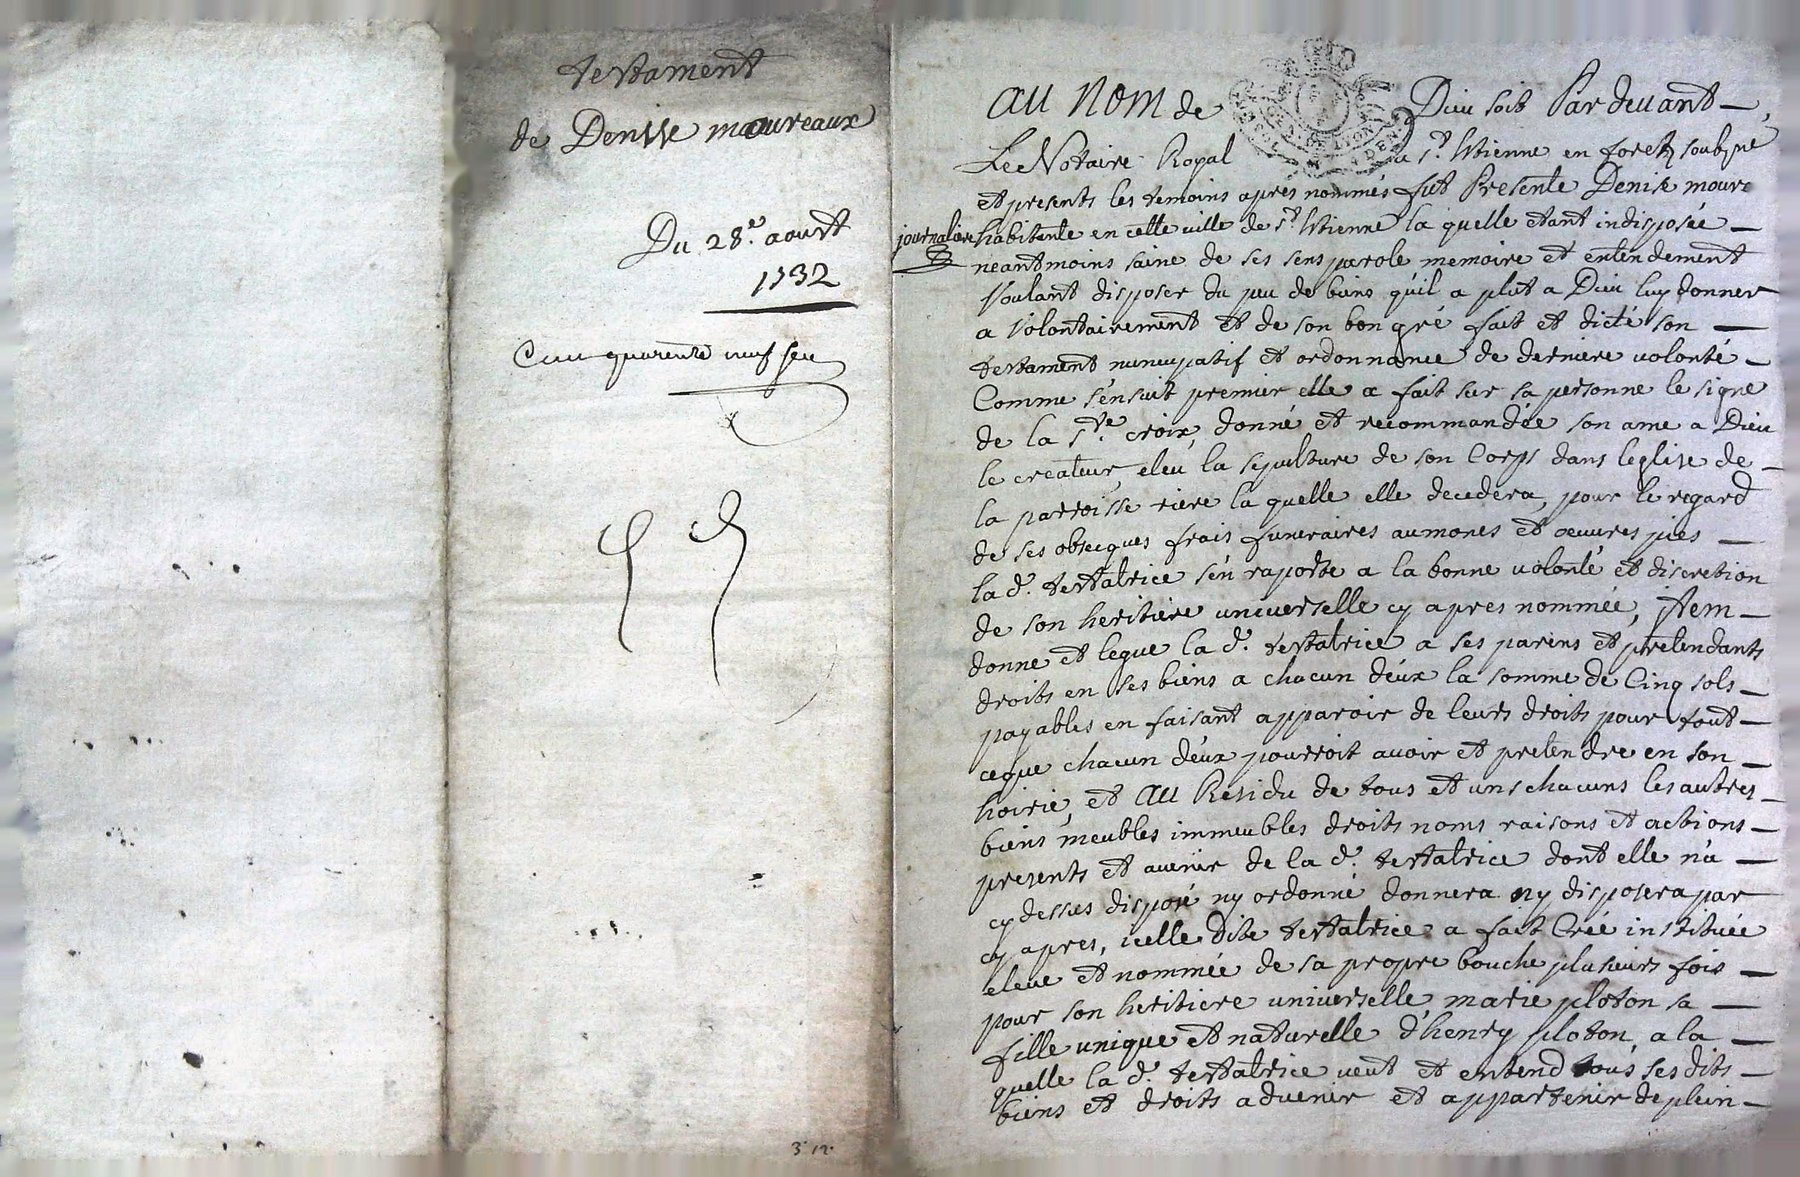 testament
de Denise moureaux
Du 28.e aoust
1732
Cent quarente neuf
3 12
au nom de Dieu soit Par devant
Le Notaire Royal a st. Etienne en forest soubsigné
et presents les temoins apres nommés fut Presente Denise moure
journaliere
habitante en cette ville de st. Etienne la quelle etant indisposée
neantmoins saine de ses sens parole memoire et entendement
Voulant disposer du peu de biens quil a plut a Dieu luy donner
a Volontairement et de son bon gré fait et dicté son
testament nuncupatif et ordonnance de derniere volonté
Comme s'ensuit premier elle a fait sur sa personne le signe
de la ste. croix, donné et recommandée son ame a Dieu
le createur, eleu la sepulture de son Corps dans leglise de
la parroisse riere la quelle elle decedera, pour le regard
de ses obseques frais funeraires aumones et oeuvres pies
la d. testatrice s'en raporte a la bonne volonté et discretion
de son heritiere universelle cy apres nommée, Item
donne et legue la d. testatrice a ses parens et pretendants
droits en ses biens a chacun déux la somme de Cinq sols
payables en faisant apparoir de leurs droits pour tout
ceque chacun déux pourroit avoir et pretendre en son
hoirie, et au Residu de tous et uns chacuns les autres
biens meubles immeubles droits noms raisons et actions
presents et avenir de la d. testatrice dont elle n'a
cy dessus disposé ny ordonné donnera ny disposera par
cy apres, icelle dite testatrice a fait Créé instituée
eleue et nommée de sa propre bouche plusieurs fois
pour son heritiere universelle marie ploton sa
fille unique et naturelle d'henry ploton, a la
quelle la d. testatrice veut et entend tous ses dits
biens et droits advenir et appartenir de plein